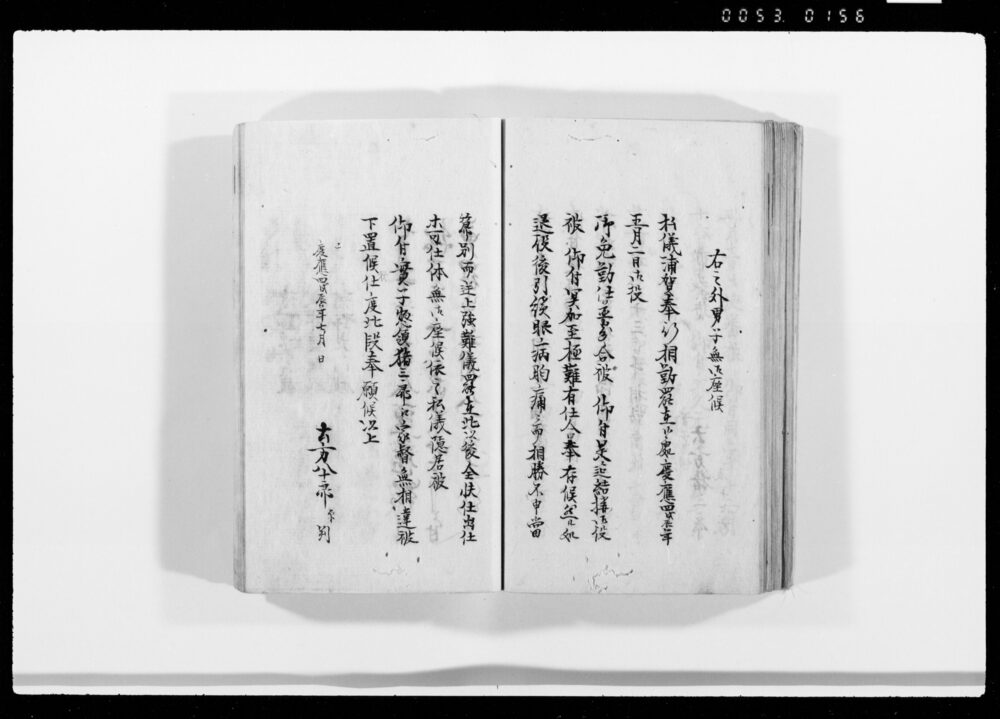 0053.0156
右之外男子無御座候
私儀浦賀奉行相勤罷在候處慶應四辰年
五月二日御役
御免勤仕並寄合被 仰付是迄結構御役
被 仰付冥加至極難有仕合奉存候然ル処
退役後引續眼病胸痛ニ而相勝不申當
節別而逆上強難儀罷在此以後全快仕出仕
等可仕体無御座候依之私儀隠居被
仰付實子惣領 三郎江家督無相違被
下置候仕度此段奉願候以上
慶應四辰年七月 日
土方八十郎 判